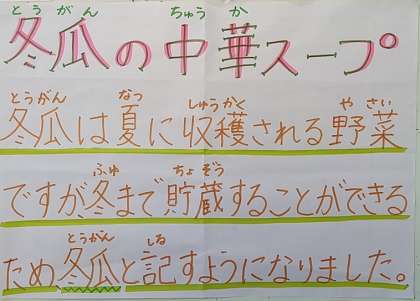 とうがん ちゅうか
冬瓜の中華スープ
とうがん なつ しゅうかく やさい
冬瓜は夏に収穫される野菜
ふゆ ちょぞう
ですが冬まで貯蔵することができる
とうがん しる
ため冬瓜と記すようになりました。